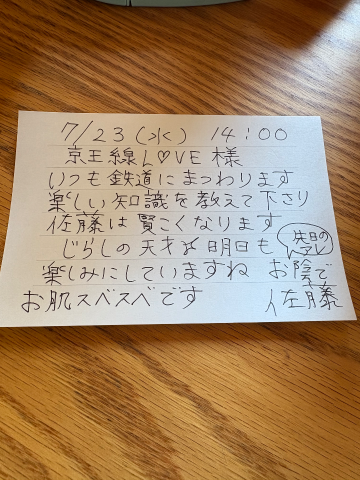 7/23(水) 14:00
京王線L♡VE様
いつも鉄道にまつわります
楽しい知識を教えて下さり
佐藤は賢こくなります
じらしの天才は明日も
先日のアレ
楽しみにしていますね お陰で
お肌スベスベです 佐藤